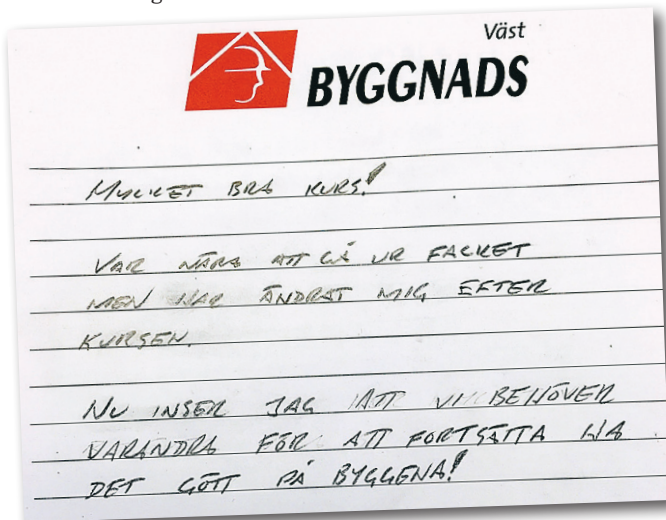 Väst
BYGGNADS
MYCKET BRA KURS!
VAR NÄRA ATT GÅ UR FACKET
MEN HAR ÄNDRAT MIG EFTER
KURSEN.
NU INSER JAG ATT VI BEHÖVER
VARANDRA FÖR ATT FORTSÄTTA HA
DET GÖTT PÅ BYGGENA!